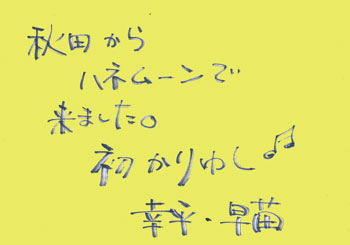 秋田から
ハネムーンで
来ました。
初かりゆし♫
幸平・早苗